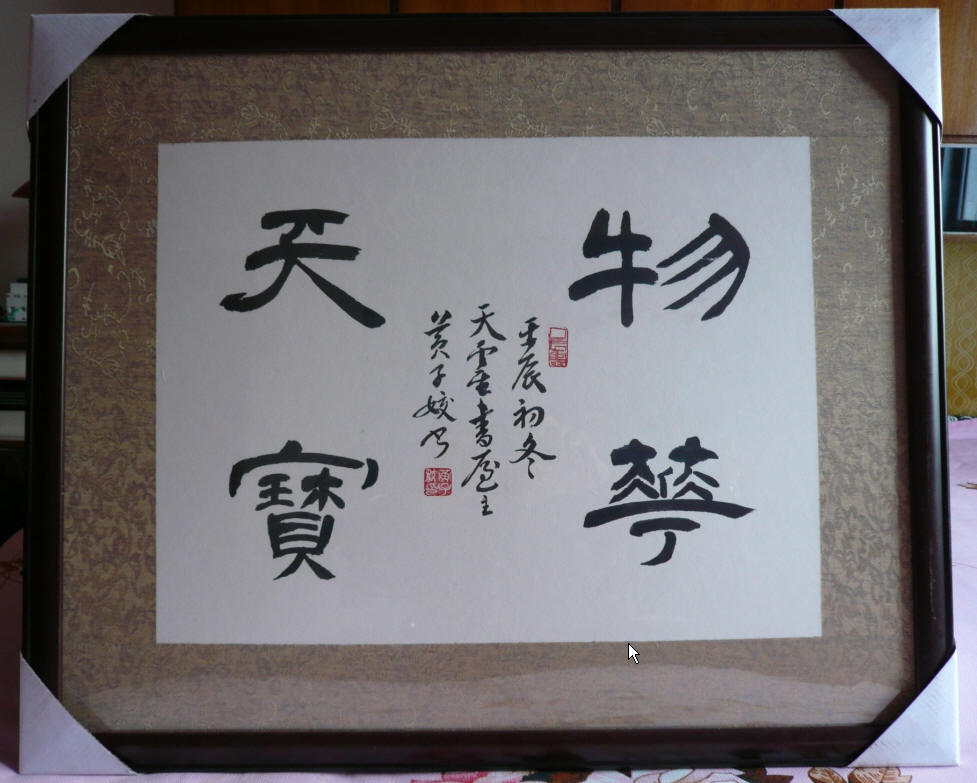 物華
天寶
壬辰初冬
天雲書屋主
黃子姣書